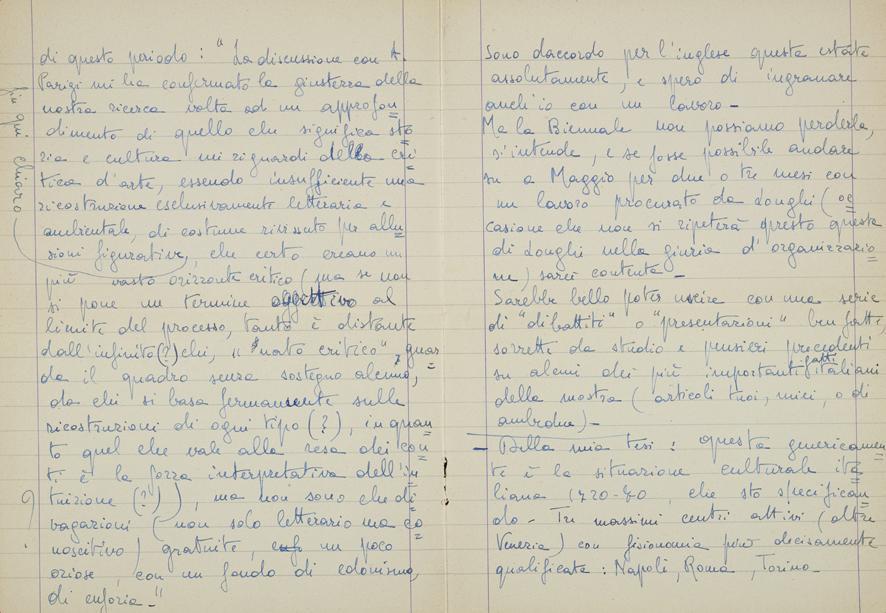 di questo periodo : "La discussione con A.
Parigi mi ha confermato la giustezza della
nostra ricerca volta ad un approfon=
dimento di quello che significa sto=
ria e cultura nei riguardi della cri=
tica d'arte, essendo insufficiente una
ricostruzione esclusivamente letteraria e
ambientale, di costume rivissuto per allu=
sioni figurative, che certo creano un
più vasto orizzonte critico (ma se non
si pone un termine oggettivo al
limite del processo, tanto è distante
dall'infinito(?) chi, "nato critico", guar=
da il quadro senza sostegno alcuno,
da chi si basa fermamente sulle
ricostruzioni di ogni tipo (?), in quan=
to quel che vale alla resa dei con=
ti è la forza interpretativa dell'in=
tuizione (?)), ma non sono che di=
vagazioni (non solo letterario ma co=
noscitivo) gratuite, un poco
oziose, con un fondo di edonismo,
di euforia."
fin qui chiaro
?
Sono daccordo per l'inglese questa estate
assolutamente, e spero di ingranare
anch'io con un lavoro -
Ma la Biennale non possiamo perderla,
s'intende, e se fosse possibile andare
su a Maggio per due o tre mesi con
un lavoro procurato da Longhi (oc=
casione che non si ripeterà presto questa
di Longhi nella giuria d'organizzazio=
ne) sarei contenta -
Sarebbe bello poter uscire con una serie
di "dibattiti" o "presentazioni" ben fatti,
sorrette da studio e pensieri precedenti
su alcuni dei più importanti fatti italiani
della mostra (articoli tuoi, miei, o di
ambedue) -
- Della mia tesi : questa genericamen=
te è la situazione culturale ita=
liana 1720-40, che sto specifican=
do - Tre massimi centri attivi (oltre
Venezia) con fisionomia più decisamente
qualificata : Napoli, Roma, Torino -